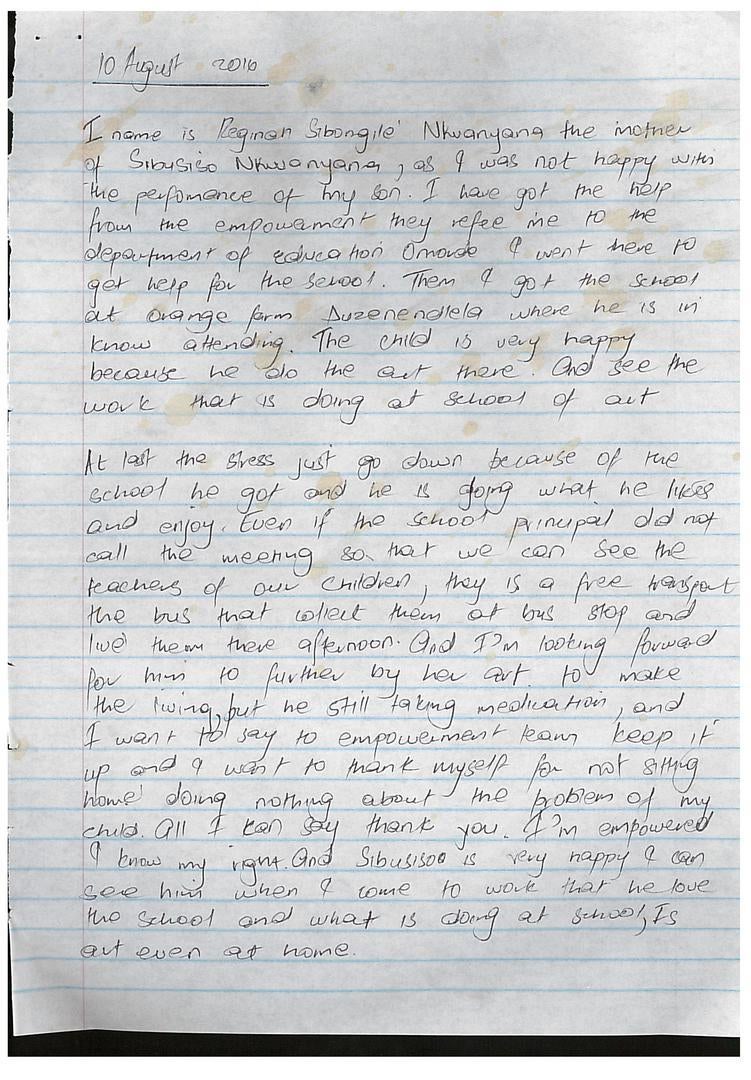 10 August 2016
I name is Reginah Sibongile Nkwanyana the mother
of Sibusiso Nkwanyana, as I was not happy with
the perfomance of my son. I have got the help
from the empowerment they refee me to the
department of education Omonde I went there to
get help for the school. Them I got the school
at orange farm Duzenendlela where he is in
know attending. The child is very happy
because he do the art there. And see the
work that is doing at school of art
At last the stress just go down because of the
school he got and he is going what he likes
and enjoy. Even if the school principal did not
call the meeting so that we can see the
teachers of our children, they is a free transport
the bus that collect them at bus stop and
live them there afternoon. And I'm looking forward
for him to further by her art to make
the living, but he still taking medication, and
I want to say to empowerment team keep it
up and I want to thank myself for not sitting
home doing nothing about the problem of my
child. All I can say thank you. I'm empowered
I know my right. And Sibusisoo is very happy I can
see him when I come to work that he love
the school and what is doing at school, Is
art even at home.